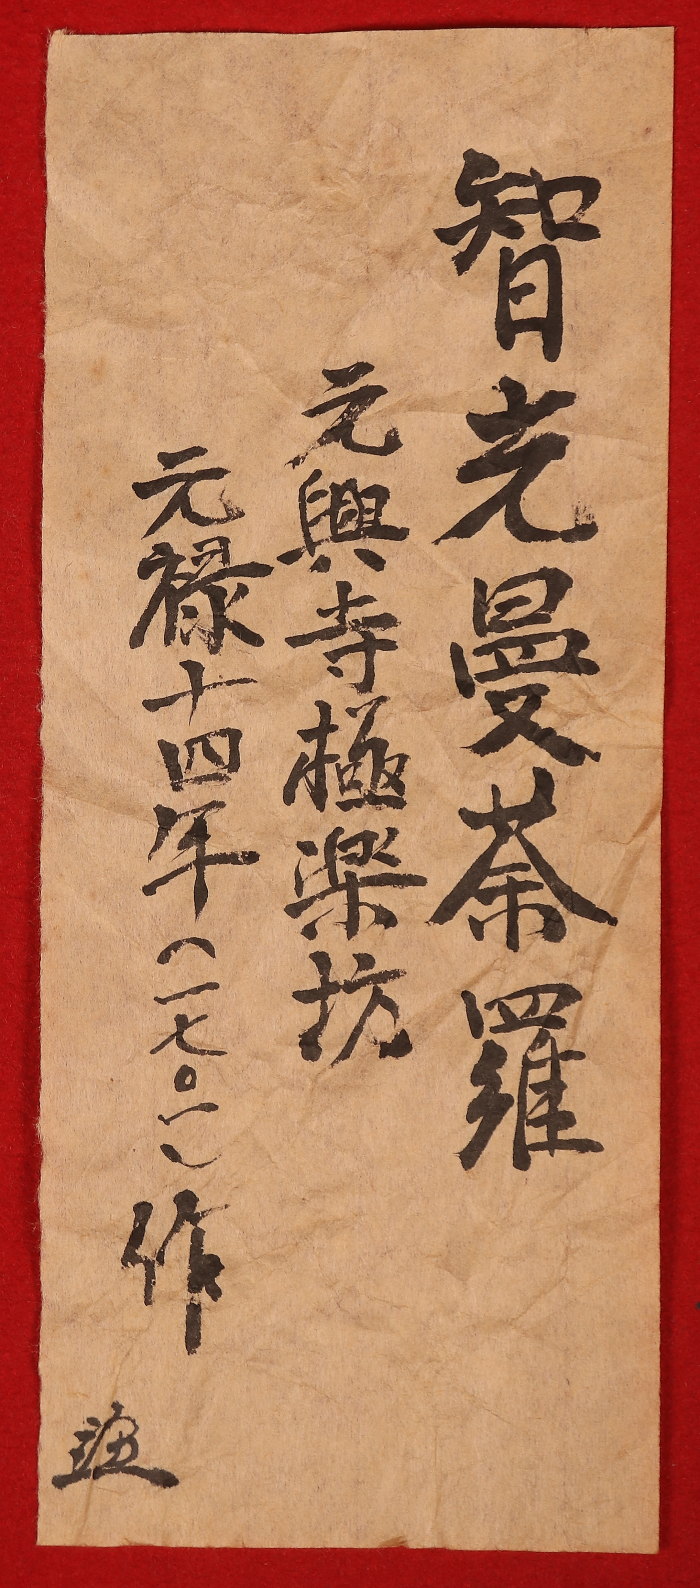 智光曼荼羅
元興寺極楽坊
元禄十四年(一七〇一)作